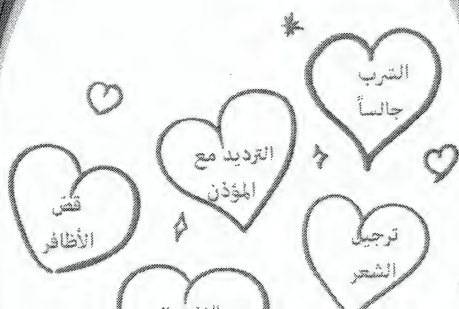 الشرب
جالساً
الترديد مع
المؤذن
قص
الأظافر
ترجيل
الشعر